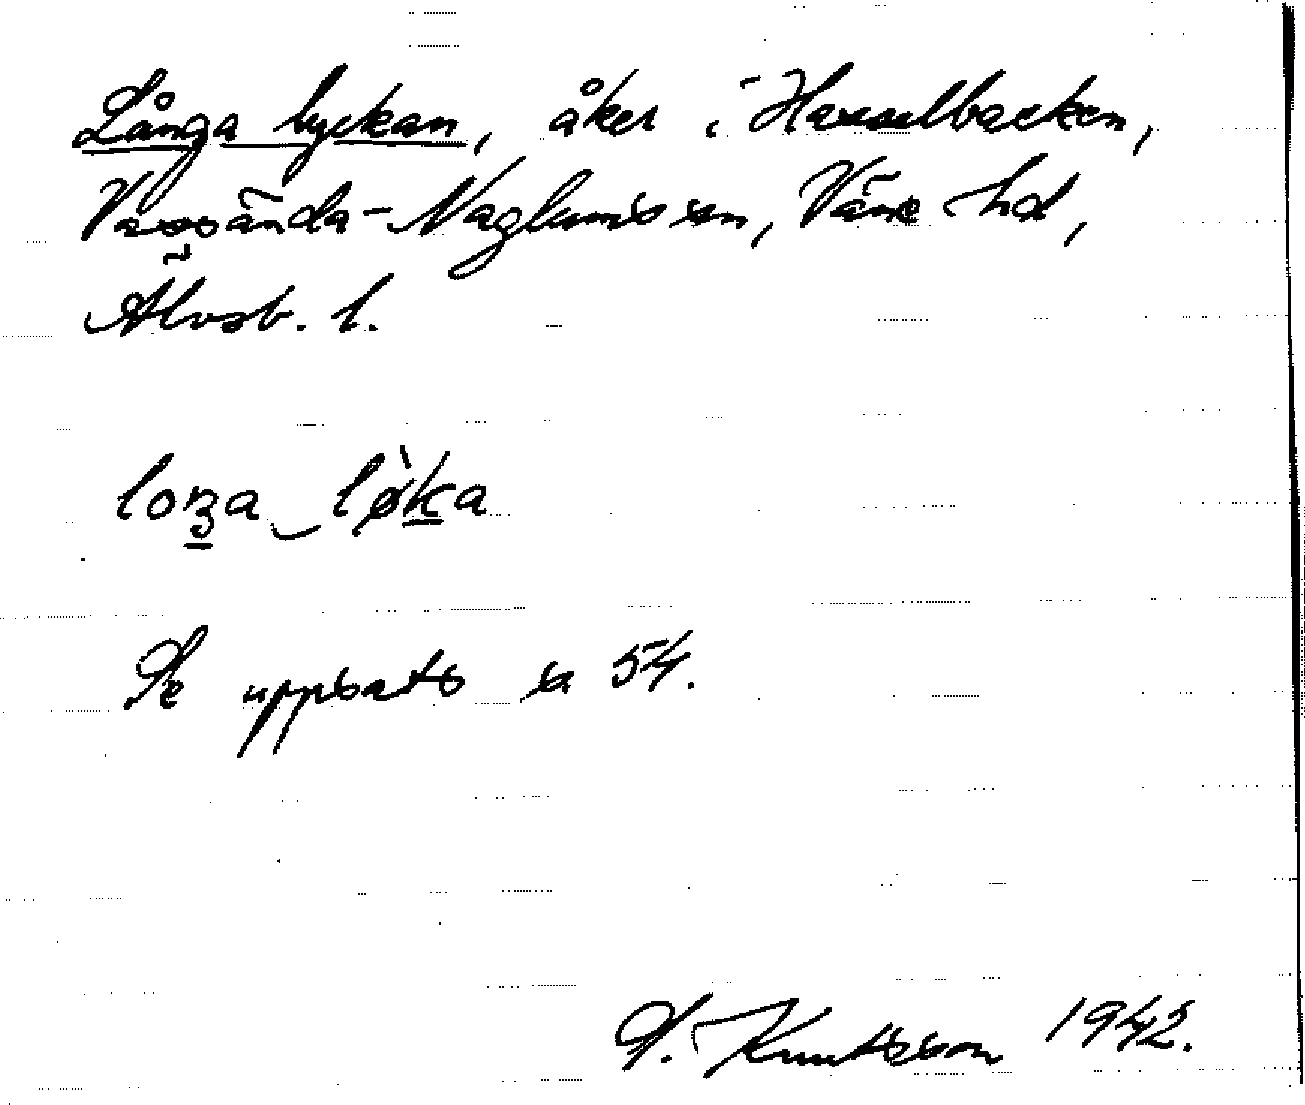 Långa lyckan, åker i Hasselbacken,
Vassända-Naglumssn, Väne hd,
Älvsb. l.
Se uppsats sa 54.
Knutsson 1942.